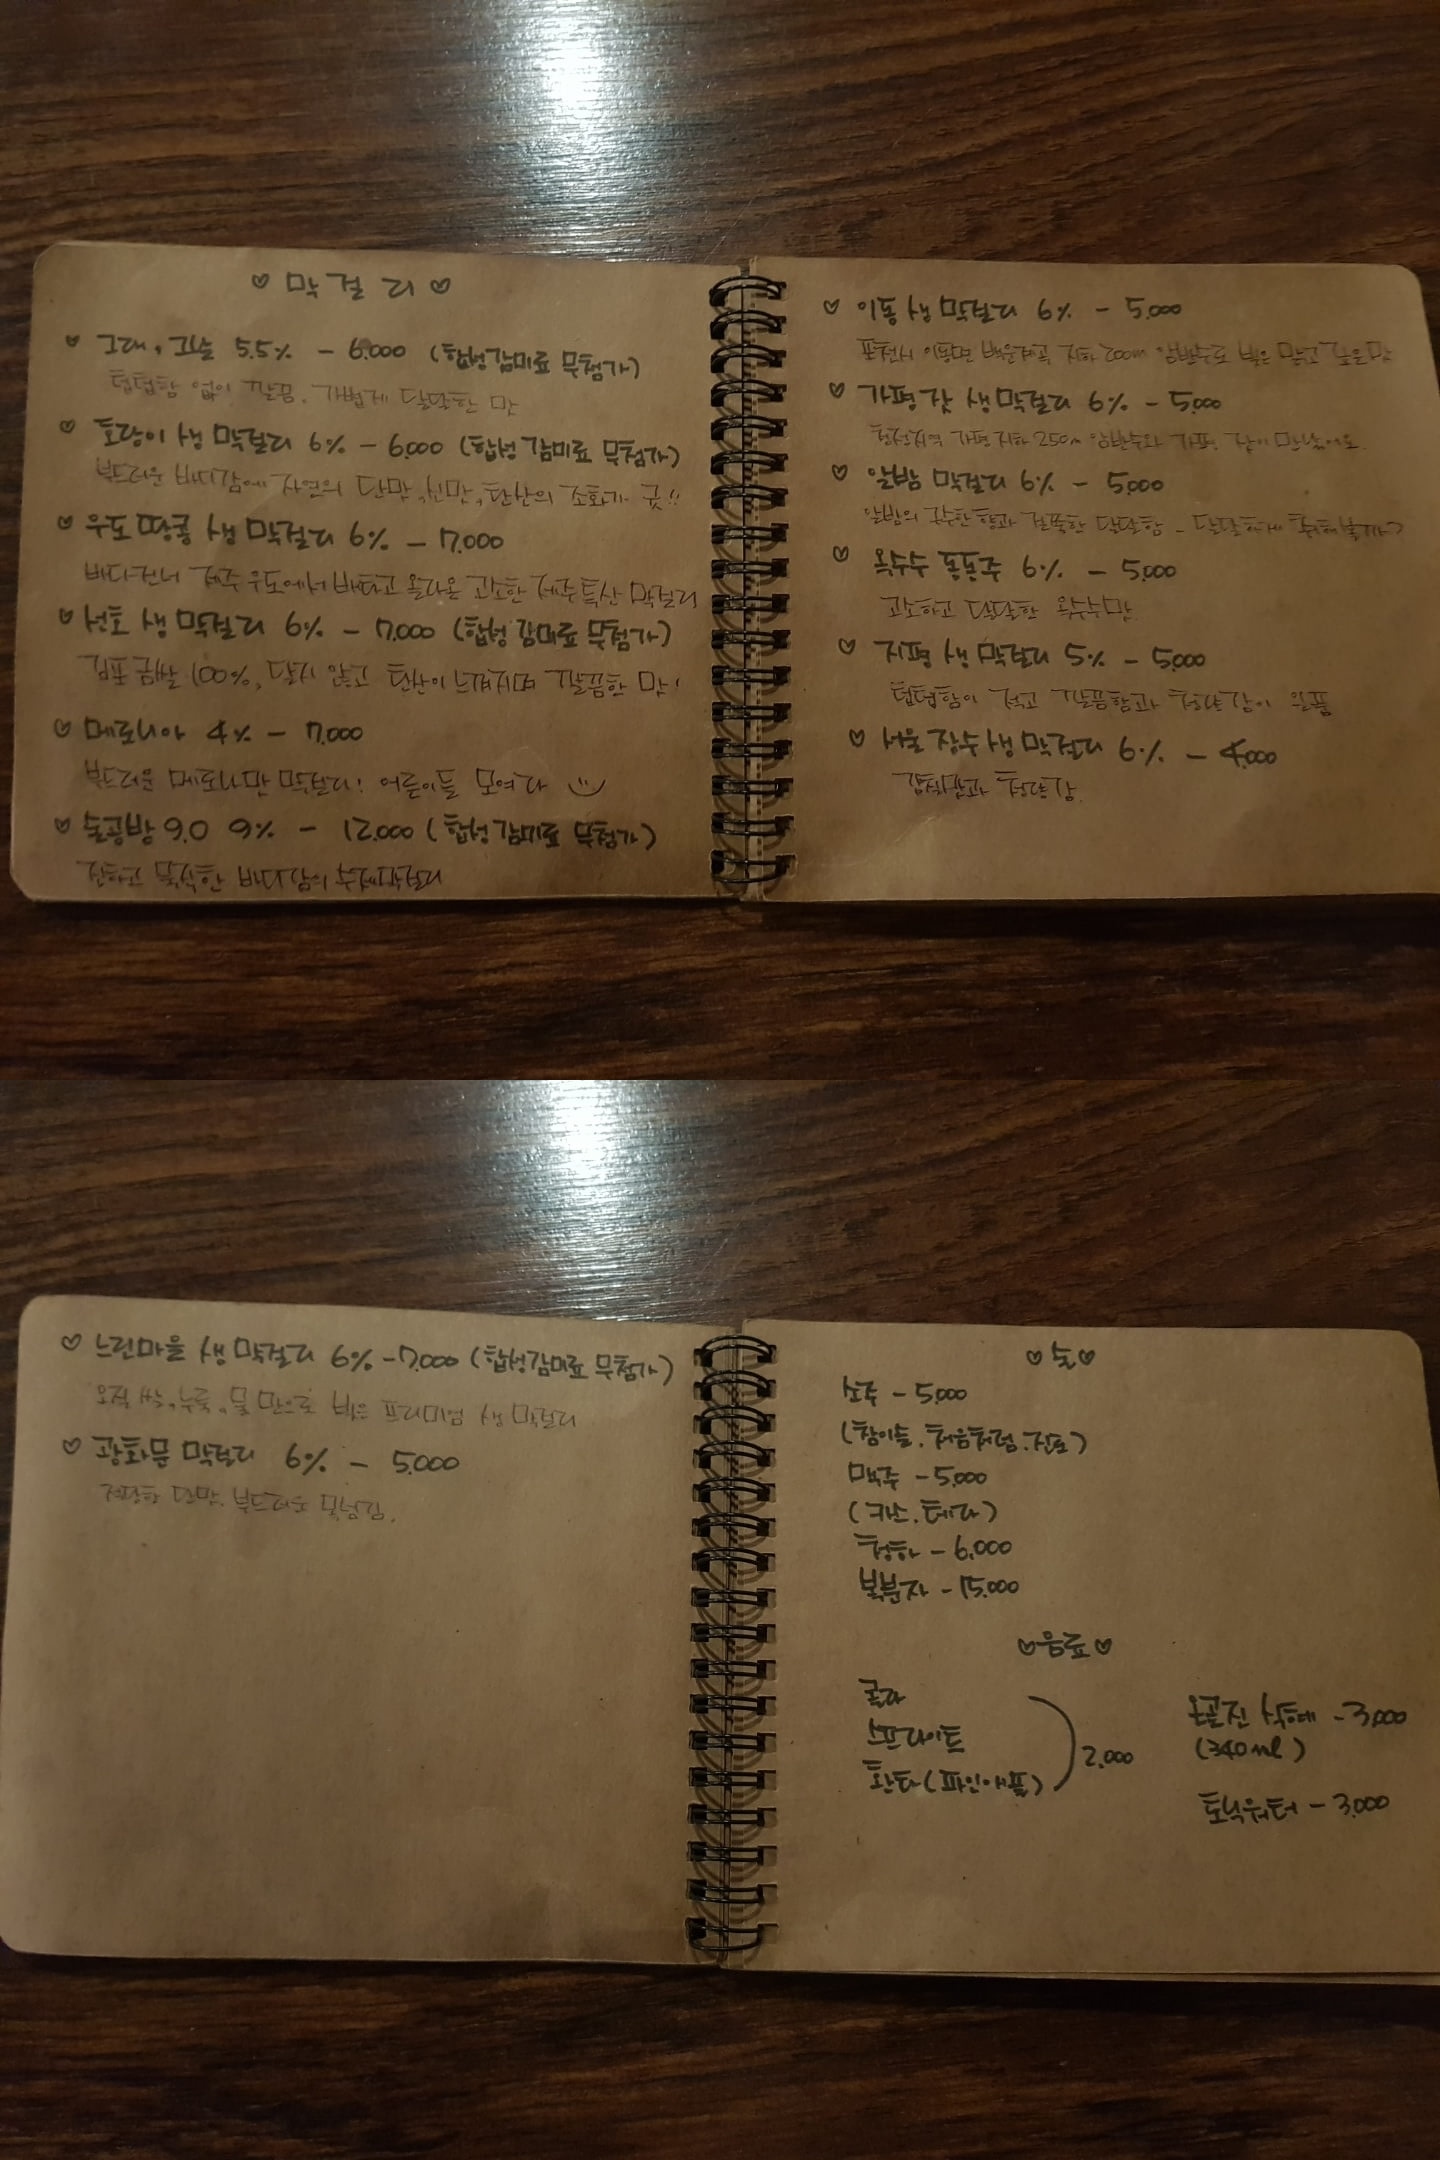 ♡ 막걸리 ♡
♡ 그대, 그날 5.5% - 6,000 (합성감미료 무첨가)
텁텁함 없이 깔끔, 가볍게 달달한 맛
♡ 호랑이 생 막걸리 6% - 6,000 (합성감미료 무첨가)
부드러운 바디감에 자연의 단맛, 신맛, 탄산의 조화가 굿!!
♡ 우도 땅콩 생 막걸리 6% - 7,000
바다건너 제주 우도에서 배타고 올라온 고소한 제주특산 막걸리
♡ 선호 생 막걸리 6% - 7,000 (합성감미료 무첨가)
김포 금쌀 100%, 달지 않고 탄산이 느껴지며 깔끔한 맛!
♡ 메로니아 4% - 7,000
부드러운 메로나맛 막걸리! 어른이들 모여라
♡ 술공방 9.0 9% - 12,000 (합성감미료 무첨가)
진하고 묵직한 바디감의 수제막걸리
♡ 이동 생 막걸리 6% - 5,000
포천시 이동면 백운계곡 지하 200m 암반수로 빚은 맑고 깊은 맛
♡ 가평 잣 생 막걸리 6% - 5,000
청정지역 가평 지하 250m 암반수와 가평 잣이 만났어요
♡ 알밤 막걸리 6% - 5,000
알밤의 구수한 향과 걸쭉한 달달함 - 달달하게 취해볼까?
♡ 옥수수 동동주 6% - 5,000
고소하고 달달한 옥수수맛
♡ 지평 생 막걸리 5% - 5,000
텁텁함이 적고 깔끔함과 청량감이 일품
♡ 서울 장수 생 막걸리 6% - 4,000
감칠맛과 청량감
♡ 느린마을 생 막걸리 6% - 7,000 (합성감미료 무첨가)
오직 쌀, 누룩, 물 만으로 빚은 프리미엄 생 막걸리
♡ 광화문 막걸리 6% - 5,000
적당한 단맛, 부드러운 목넘김.
♡ 술 ♡
소주 - 5,000
(참이슬, 처음처럼, 진로)
맥주 - 5,000
(카스, 테라)
청하 - 6,000
복분자 - 15,000
♡ 음료 ♡
콜라
스프라이트
환타 (파인애플)
2,000
옹골진 식혜 - 3,000
(340ml)
토닉워터 - 3,000